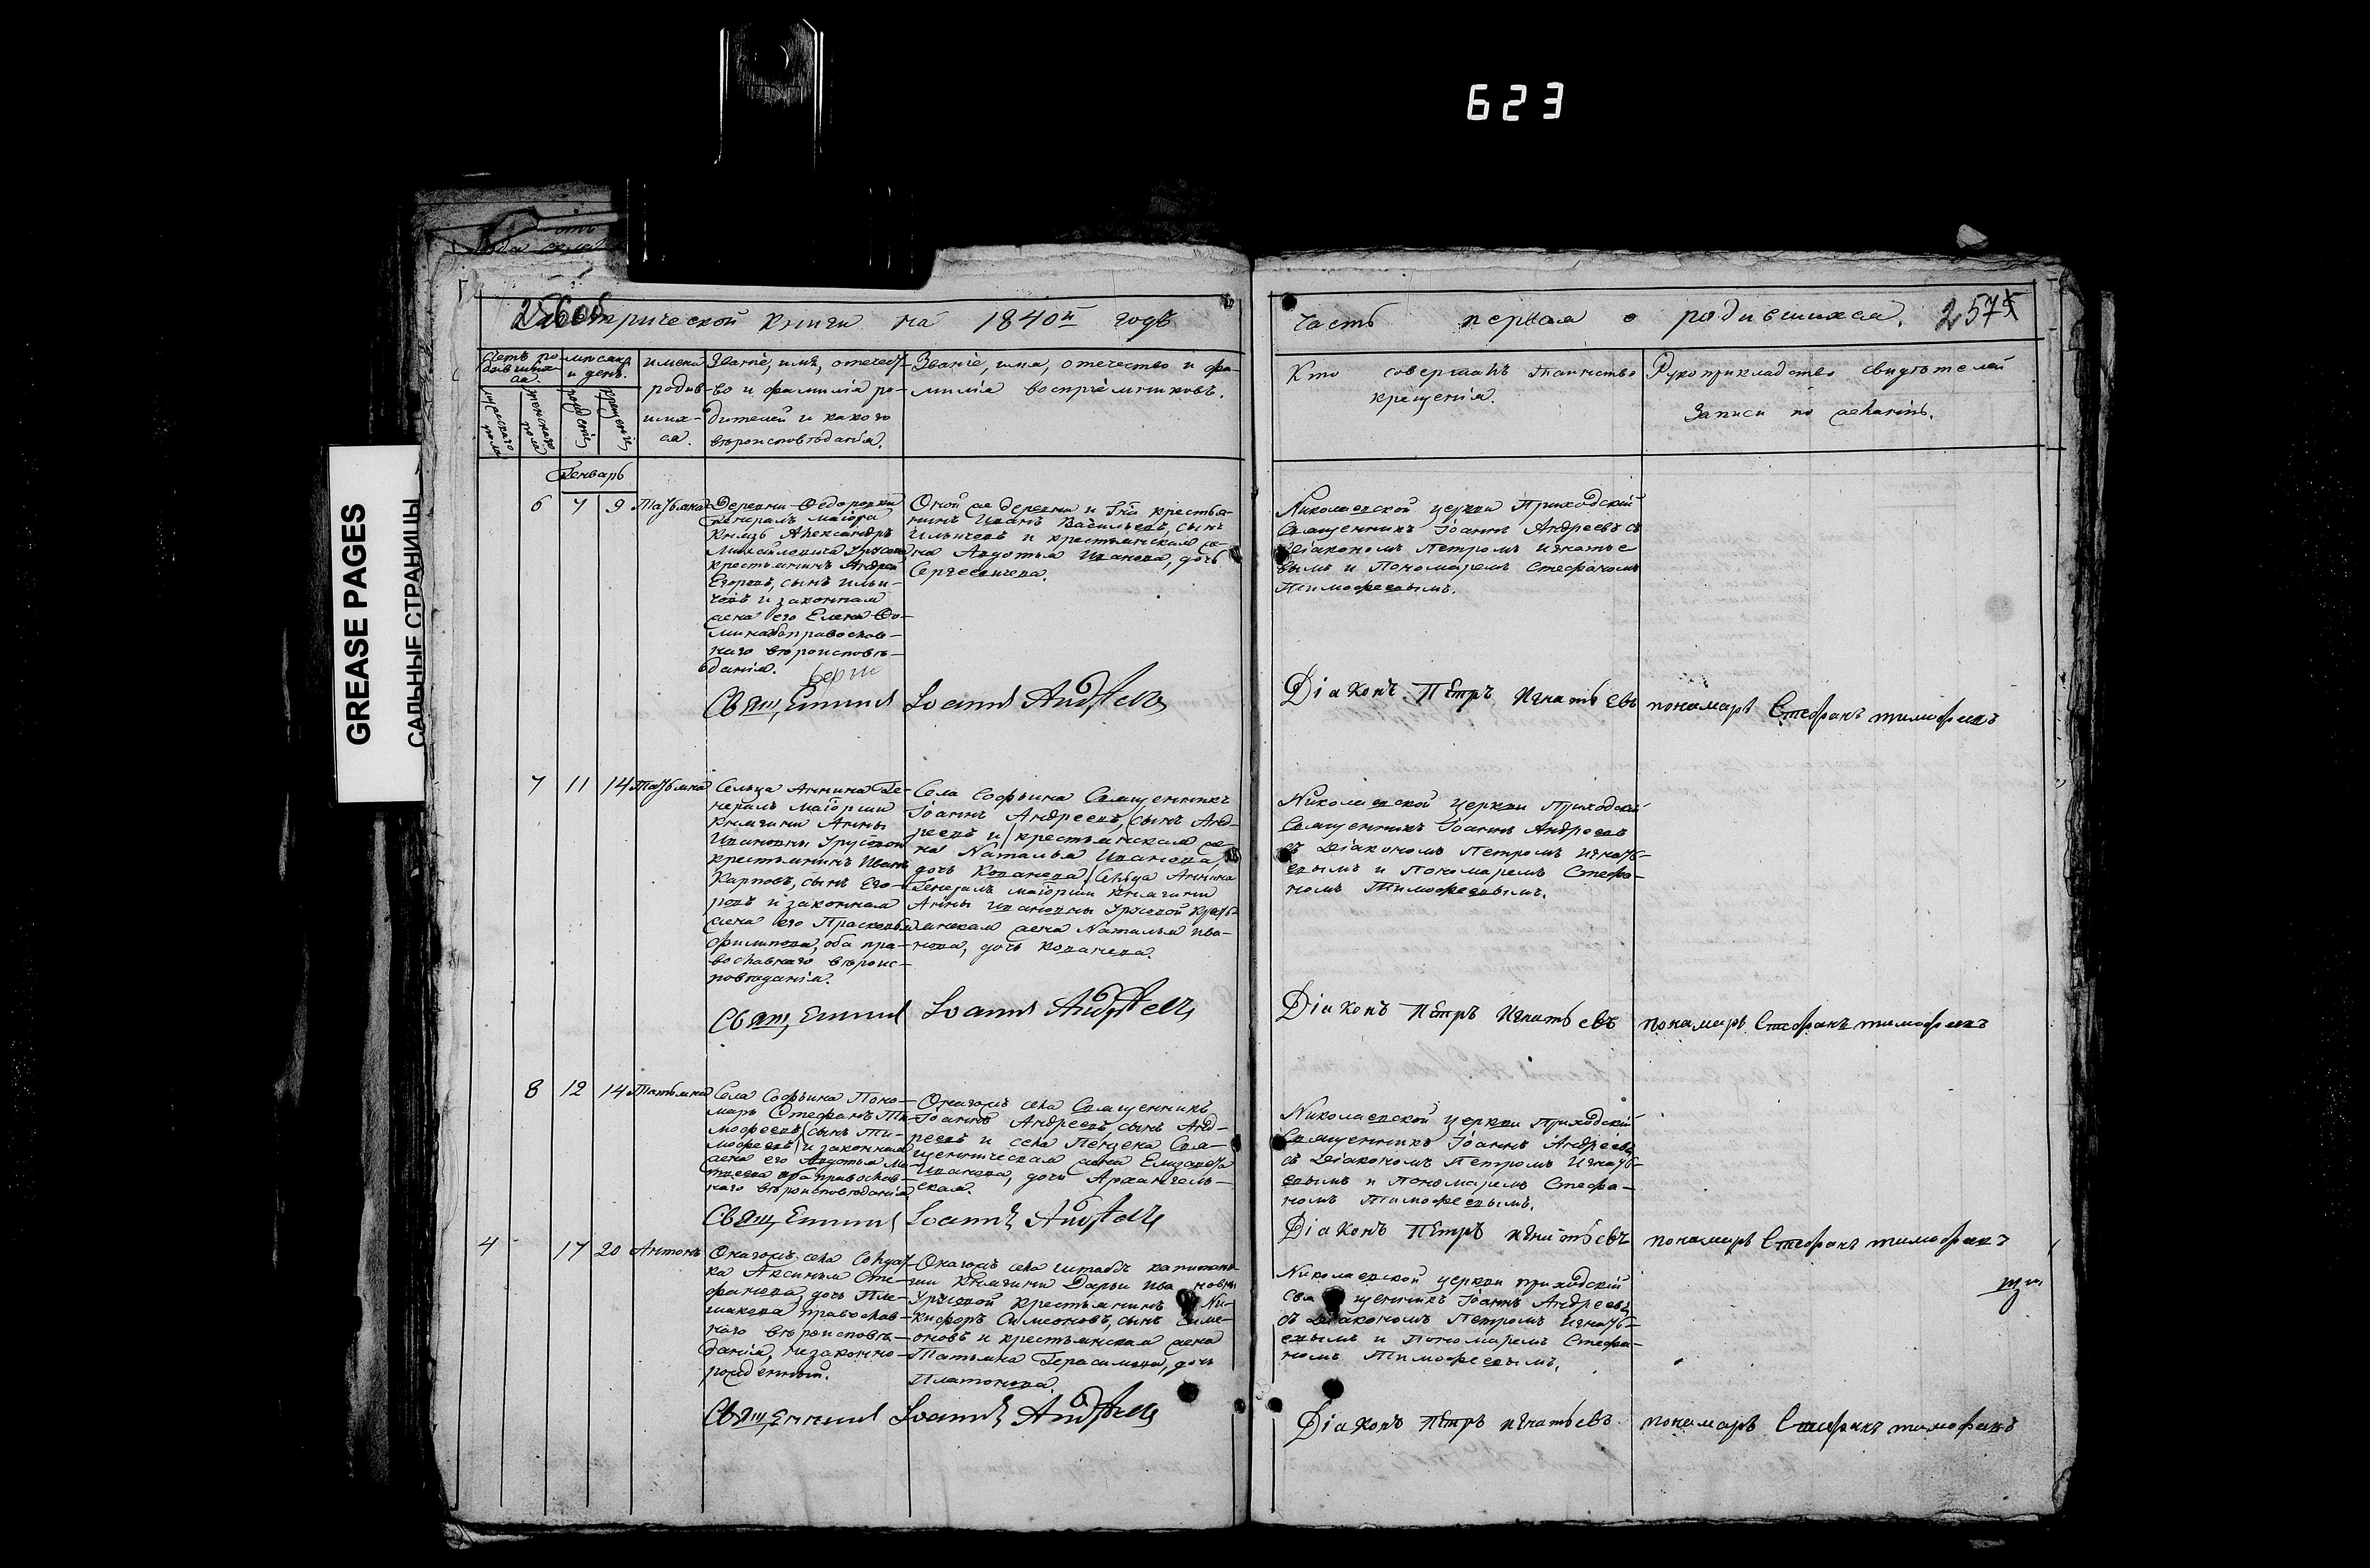 623
GREASE PAGES
САЛЬНЫЕ СТРАНИЦЫ
256об
Метрической книги на 1840й годъ
часть первая о родившихся. 257
Счетъ ро-
дивших-
ся.
мѣсяцъ
и день.
имена
родив-
ших-
ся.
Званіе, имя, отечест-
во и фамилія ро-
дителей и какого
вѣроисповѣданія.
Званіе, имя, отечество и фа-
милія воспріемниковъ.
Кто совершалъ таинство
крещенія.
Рукоприкладство свидѣтелей
записи по желанію.
мужескаго
пола
женскаго
пола
рожденіе
крещеніе
Генварь
6 7 9 Татьяна
Деревни Федоровки
Генералъ маіора
Князь Александръ
Михайловича Урусова
крестьянинъ Андрей
Егоровъ, сынъ Ильи-
човъ и законная
жена его Елена Фо-
мина оба православ-
наго вѣроисповѣ-
данія.
Оной же деревни и Гна крестья-
нинъ Иванъ Васильевъ, сынъ
Ильичевъ и крестьянская же-
на Авдотья Иванова, дочь
Сергеевичева.
Николаевской церкви Приходскій
Священникъ Іоаннъ Андреевъ съ
Діакономъ Петромъ Игнатье
вымъ и Пономаремъ Стефаномъ
Тимофеевымъ.
Священникъ Іоаннъ Андреевъ
Діаконъ Петръ Игнатьевъ
пономарь Стефанъ тимофеевъ
7 11 14 Татьяна
Сельца Аннина Ге-
нералъ маіорши
Княгини Анны
Ивановны Урусовой
крестьянинъ Иванъ
Карповъ, сынъ Его-
ровъ и законная
жена его Прасковья
Филипова, оба пра-
вославнаго вѣроис-
повѣданія.
Села Софьина Священникъ
Іоаннъ Андреевъ, сынъ Анд-
реевъ и крестьянская же-
на Наталья Иванова,
дочь Кованева Сельца Аннина
Генералъ маіорши Княгини
Анны Ивановны Урусовой кресть-
янская жена Наталья Ива-
нова, дочь Кованева.
Николаевской церкви Приходскій
Священникъ Іоаннъ Андреевъ
съ Діакономъ Петромъ Игнать-
евымъ и Пономаремъ Стефа-
номъ Тимофеевымъ.
Священникъ Іоаннъ Андреевъ
Діаконъ Петръ Игнатьевъ
пономарь Стефанъ тимофеевъ
8 12 14 Татьяна
Села Софьина Поно-
марь Стефанъ Ти-
мофеевъ сынъ Ти-
мофеевъ и законная
жена его Авдотья Ма-
твеева оба православ-
наго вѣроисповѣданія
Онагожъ села Священникъ
Іоаннъ Андреевъ, сынъ Анд-
реевъ и села Пензена Свя-
щенническая жена Елизавета
Иванова, дочь Архангель-
ская.
Николаевской церкви Приходскій
Священникъ Іоаннъ Андреевъ
съ Діакономъ Петромъ Игнать-
евымъ и Пономаремъ Стефа-
номъ Тимофеевымъ.
Священникъ Іоаннъ Андреевъ
Діаконъ Петръ Игнатьевъ
пономарь Стефанъ тимофеевъ
4 17 20 Антонъ
Онагожъ села Солдат-
ка Аксинья Сте-
фанова, дочь Пле-
шакова православ-
наго вѣроисповѣ-
данія, незаконно-
рожденный.
Онагожъ села штабсъ капитан-
ши Княгини Дарьи Ивановны
Урусовой крестьянинъ Ни-
кифоръ Симеоновъ, сынъ Симе-
оновъ и крестьянская жена
Татьяна Герасимова, дочь
Платонова.
Николаевской церкви приходскій
Священникъ Іоаннъ Андреевъ
съ Діакономъ Петромъ Игнать-
евымъ и Пономаремъ Стефа-
номъ Тимофеевымъ.
Священникъ Іоаннъ Андреевъ
Діаконъ Петръ Игнатьевъ
пономарь Стефанъ тимофеевъ